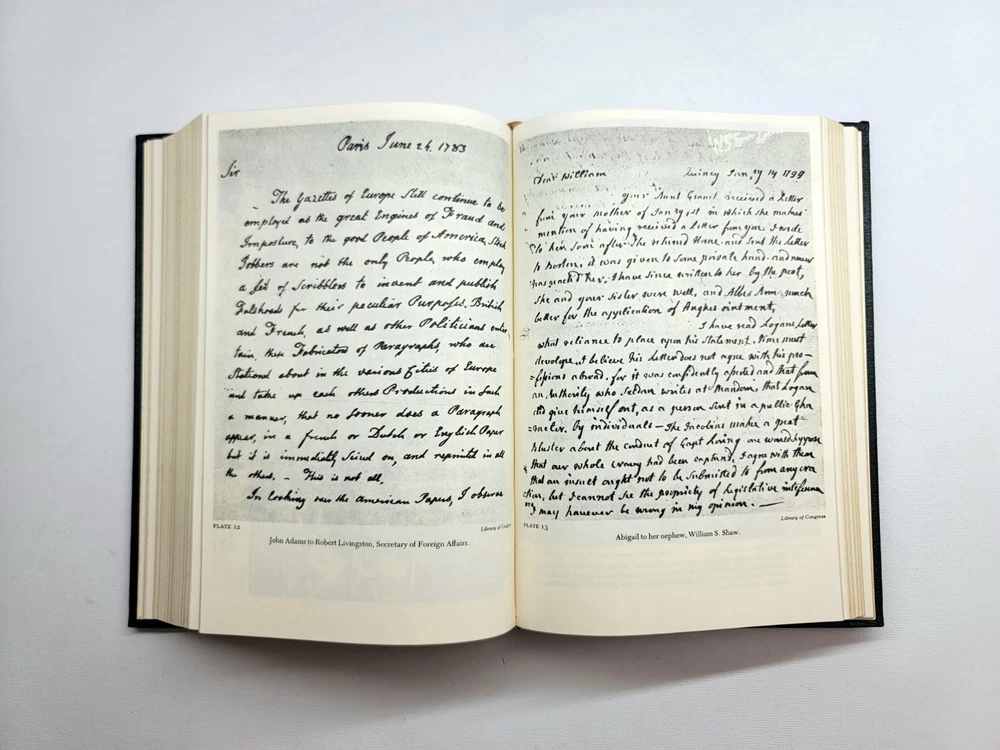 Paris June 24. 1783
Sir
The Gazettes of Europe Still continue to be
employed as the great Engines of Fraud and
Imposture, to the good People of America, Stock
Jobbers are not the only People, who employ
a Set of Scribblers to invent and publish
Falshoods for their peculiar Purposes. British
and French, as well as other Politicians enter
tain these Fabricators of Paragraphs, who are
Stationed about in the various Cities of Europe
and take up each others Productions in Such
a manner, that no sooner does a Paragraph
appear, in a french or Dutch or English Paper
but it is immediately Seized on, and reprinted in all
the others. – This is not all.
In looking over the American Papers, I observe
PLATE 12
Library of
John Adams to Robert Livingston, Secretary of Foreign Affairs.
Dear William
Quincy Janry 14 1799
your Aunt received a Letter
from your Mother of Janry 1st in which she makes
mention of having received a Letter from you. I wrote
to her Soon after She returnd Home and sent the Letter
to Boston, it was given to Some private hand and never
reachd her, I have since written to her by the post,
She and your Sister were well, and much
better for the application of ointment,
I have read Logans Letter
what reliance to place upon his Statement, time must
develope, I believe his Letter does not agree with his pro-
=fessions abroad, for it was confidently asserted and that from
an Authority who Seldom writes at Random, that Logan
did give himself out, as a person Sent in a public Cha
=racter, by individuals – The Jacobins make a great
bluster about the conduct of Capt Loring one would suppose
that our whole had been captured, I agree with them
that an insult ought not to be Submitted to from any
but I cannot See the propriety of Legislative interference
I may however be wrong in my opinion. —
PLATE 13
Library of Congress
Abigail to her nephew, William S. Shaw.